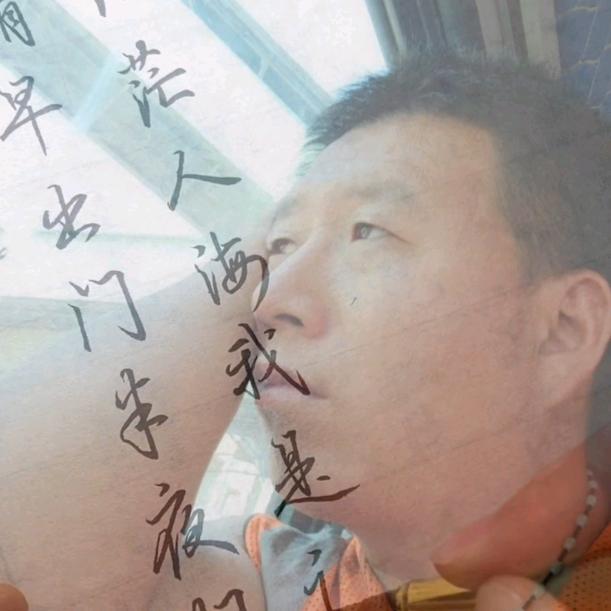 茫人海我是
早出门半夜